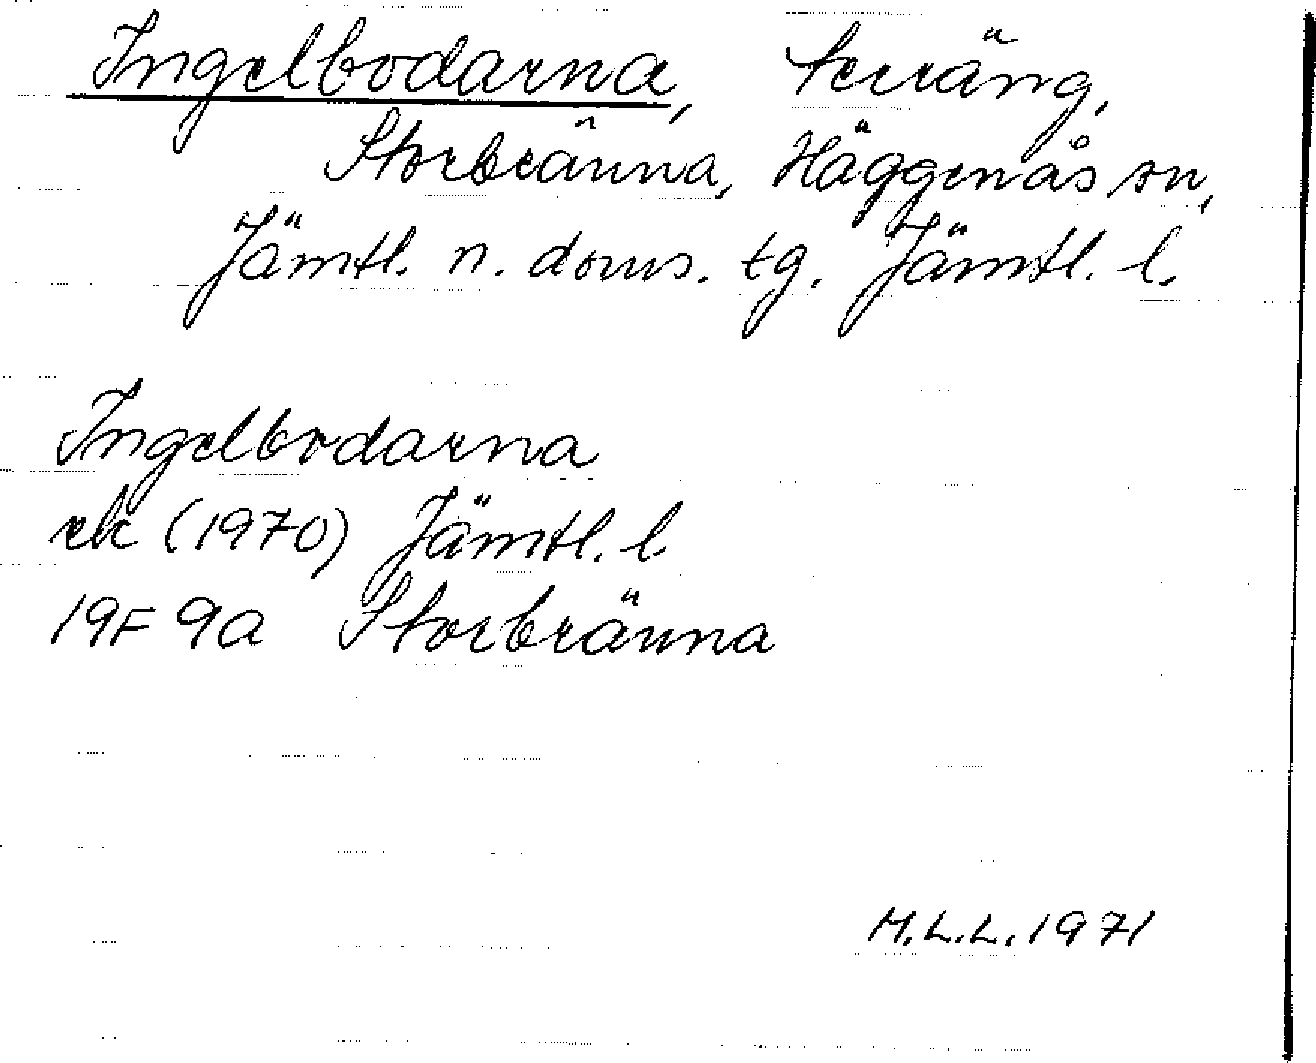 Ingelbodarna, terräng,
Storbränna, Häggenås sn,
Jämtl. n. doms. tg. Jämtl. l.
Ingelbodarna
ek (1970) Jämtl. l.
19F 9a Storbränna
M.L.L. 1971